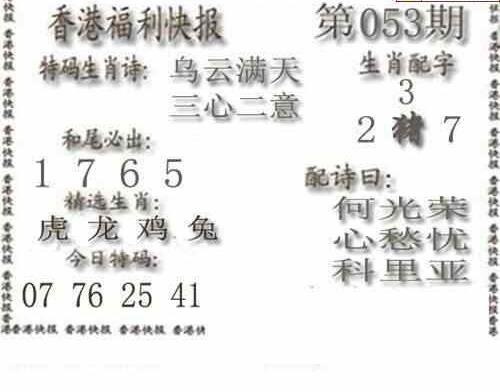 香港福利快报
第053期
特码生肖诗: 乌云满天
三心二意
生肖配字
3
2 猪 7
和尾必出:
1 7 6 5
精选生肖:
虎 龙 鸡 兔
今日特码:
07 76 25 41
配诗曰:
何光荣
心愁忧
科里亚
香港快报 香港快报 香港快报 香港快报 香港快报
香港快报 香港快报 香港快报 香港快报
香港快报 香港快报 香港快报 香港快报